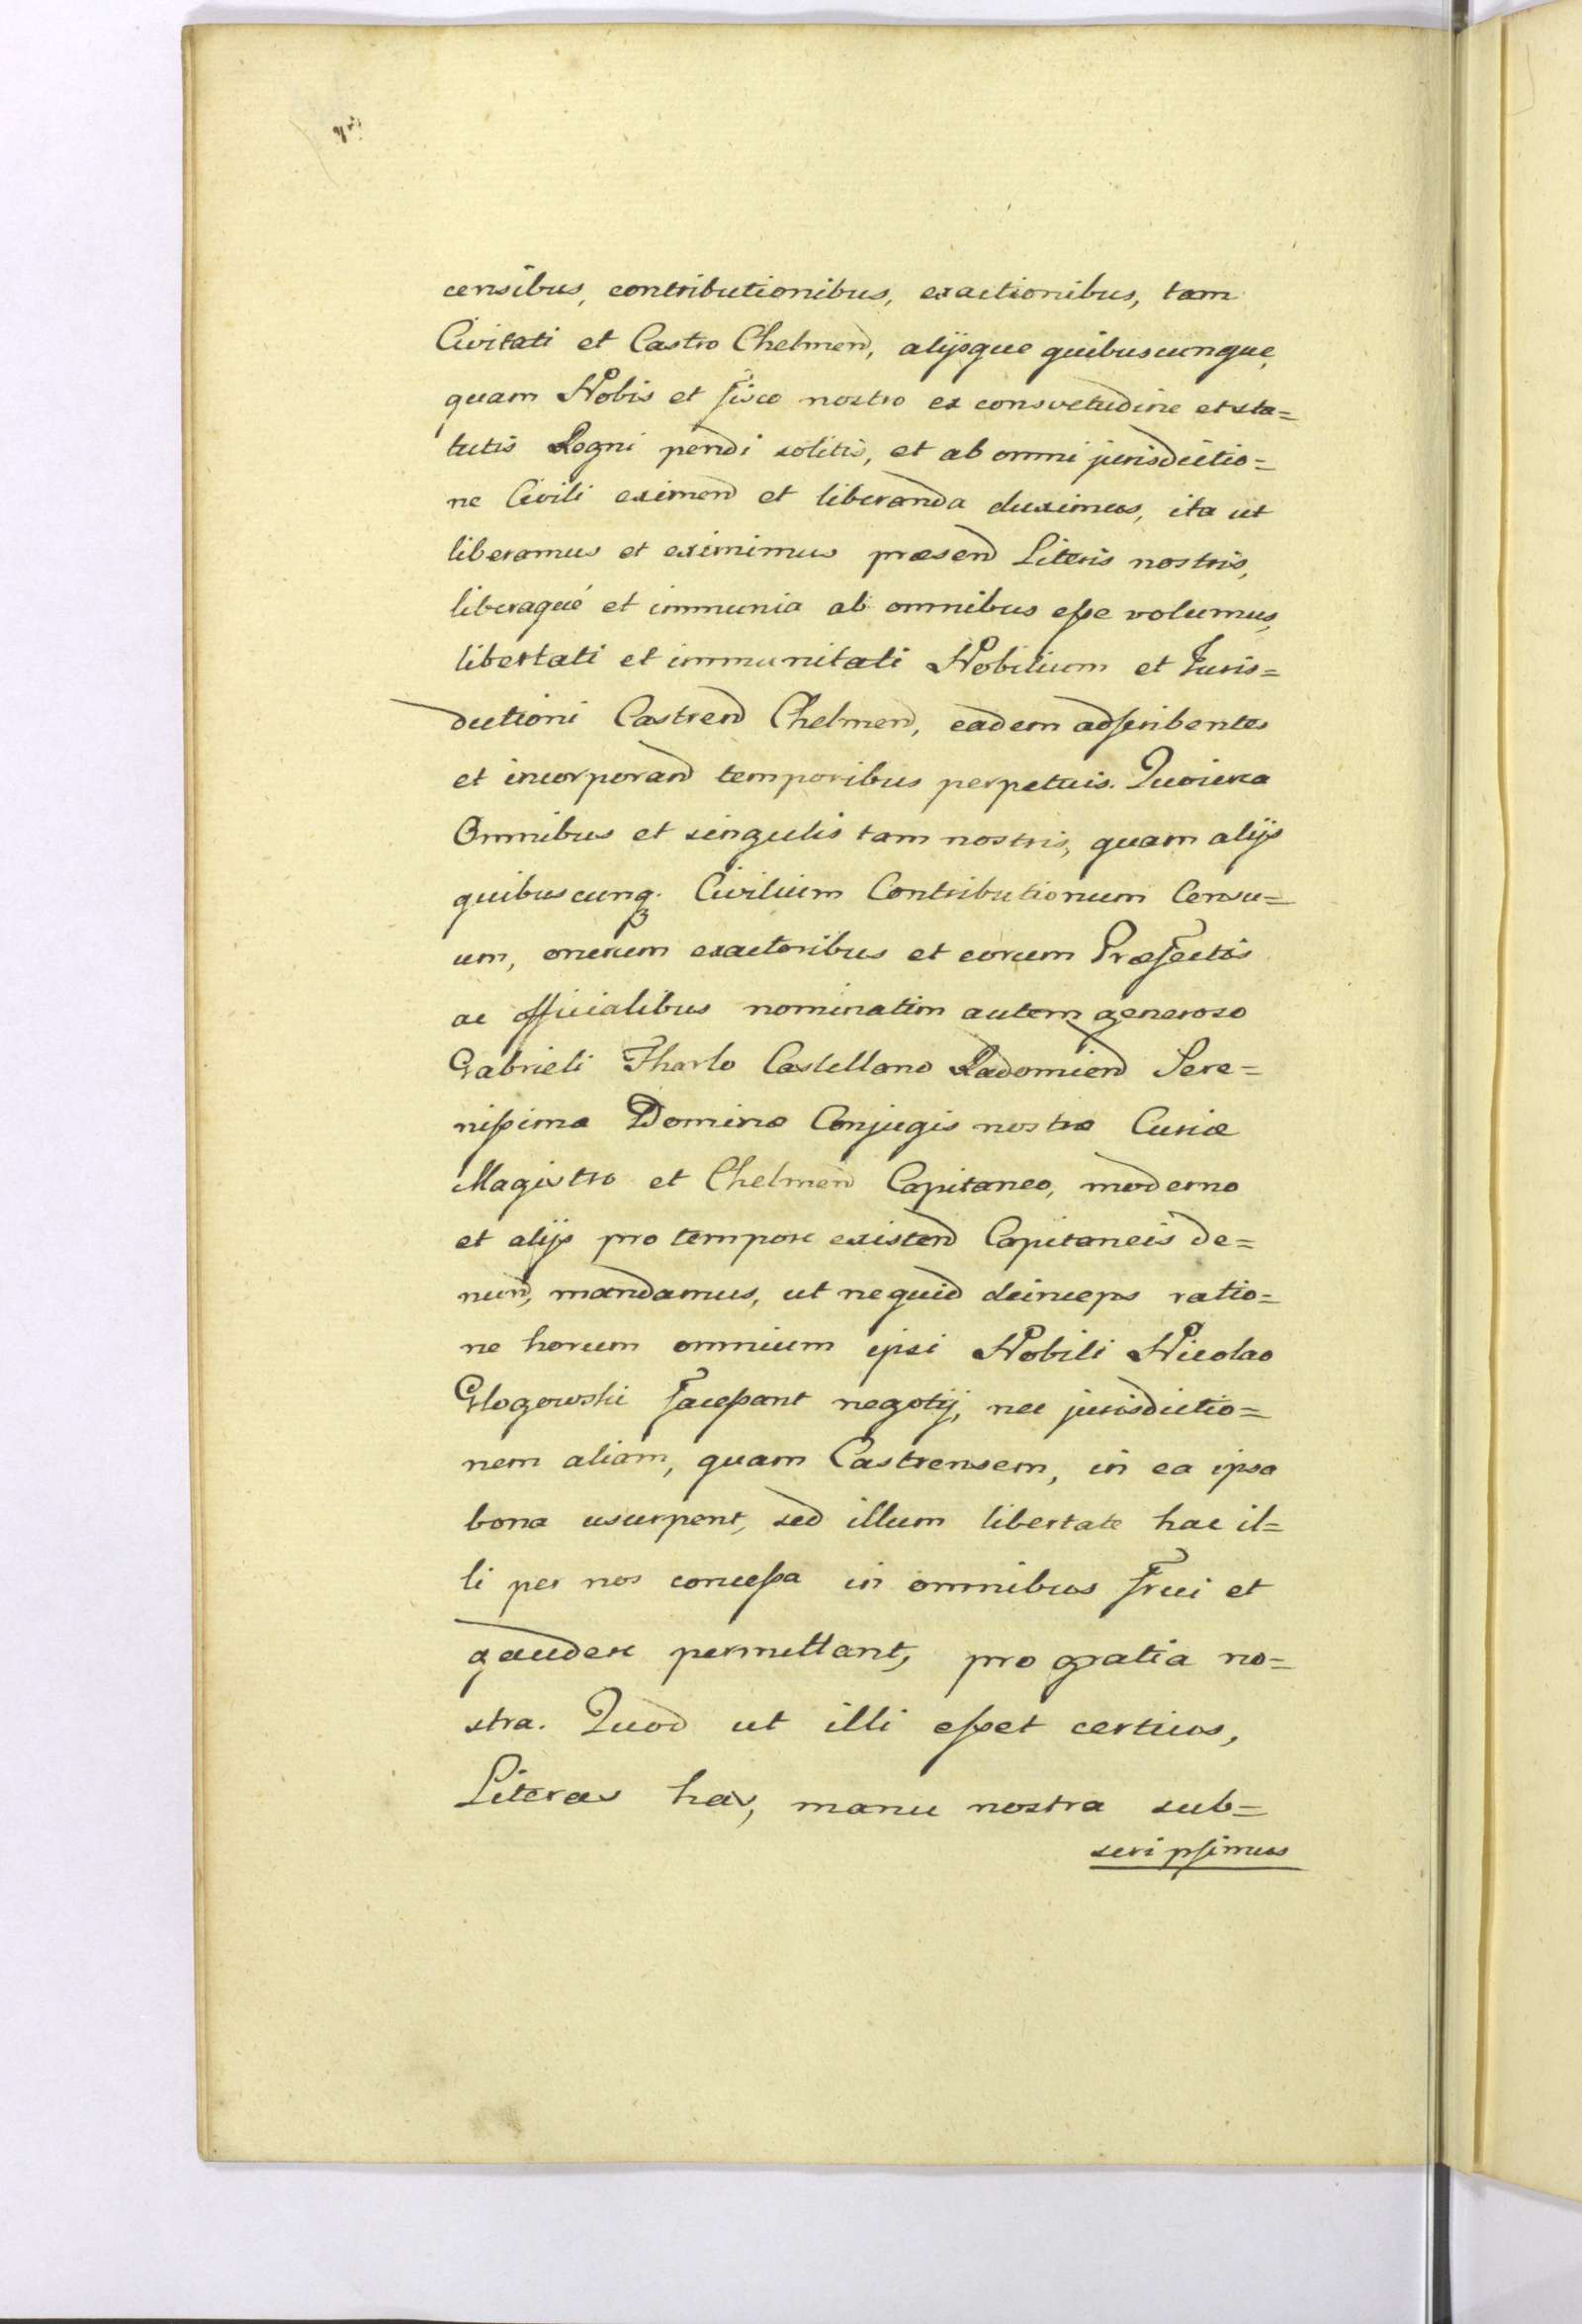 censibus, contributionibus, exactionibus, tam
Civitati et Castro Chelmen, alijsque quibuscunque,
quam Nobis et fisco nostro ex consvetudine et sta=
tutis Regni pendi solitis, et ab omni jurisdictio=
ne Civili eximend et liberanda duximus, ita ut
liberamus et eximimus præsend Literis nostris,
liberaqué et immunia ab omnibus eſse volumus,
libertati et immunitati Nobilium et Juris=
dictioni Castrend Chelmen, eadem adſcribentes
et incorporand temporibus perpetuis. Quocirca
Omnibus et singulis tam nostris, quam alijs
quibuscunq. Civilium Contributionum Censu=
um, onerum exactoribus et eorum Præfectis
ac officialibus nominatim autem generoso
Gabrieli Tharlo Castellano Radomiend Sere=
niſsimæ Dominæ Conjugis nostræ Curiæ
Magistro et Chelmend Capitaneo, moderno
et alijs pro tempore existend Capitaneis de=
nund, mandamus, ut nequid deinceps ratio=
ne horum omnium ipsi Nobili Nicolao
Glogowski faceſsant negotij, nec jurisdictio=
nem aliam, quam Castrensem, in ea ipsa
bona usurpent, sed illum libertate hac il=
li per nos conceſsa in omnibus frui et
gaudere permittant, pro gratia no=
stra. Quod ut illi eſset certius,
Literas has, manu nostra sub=
scripſimus